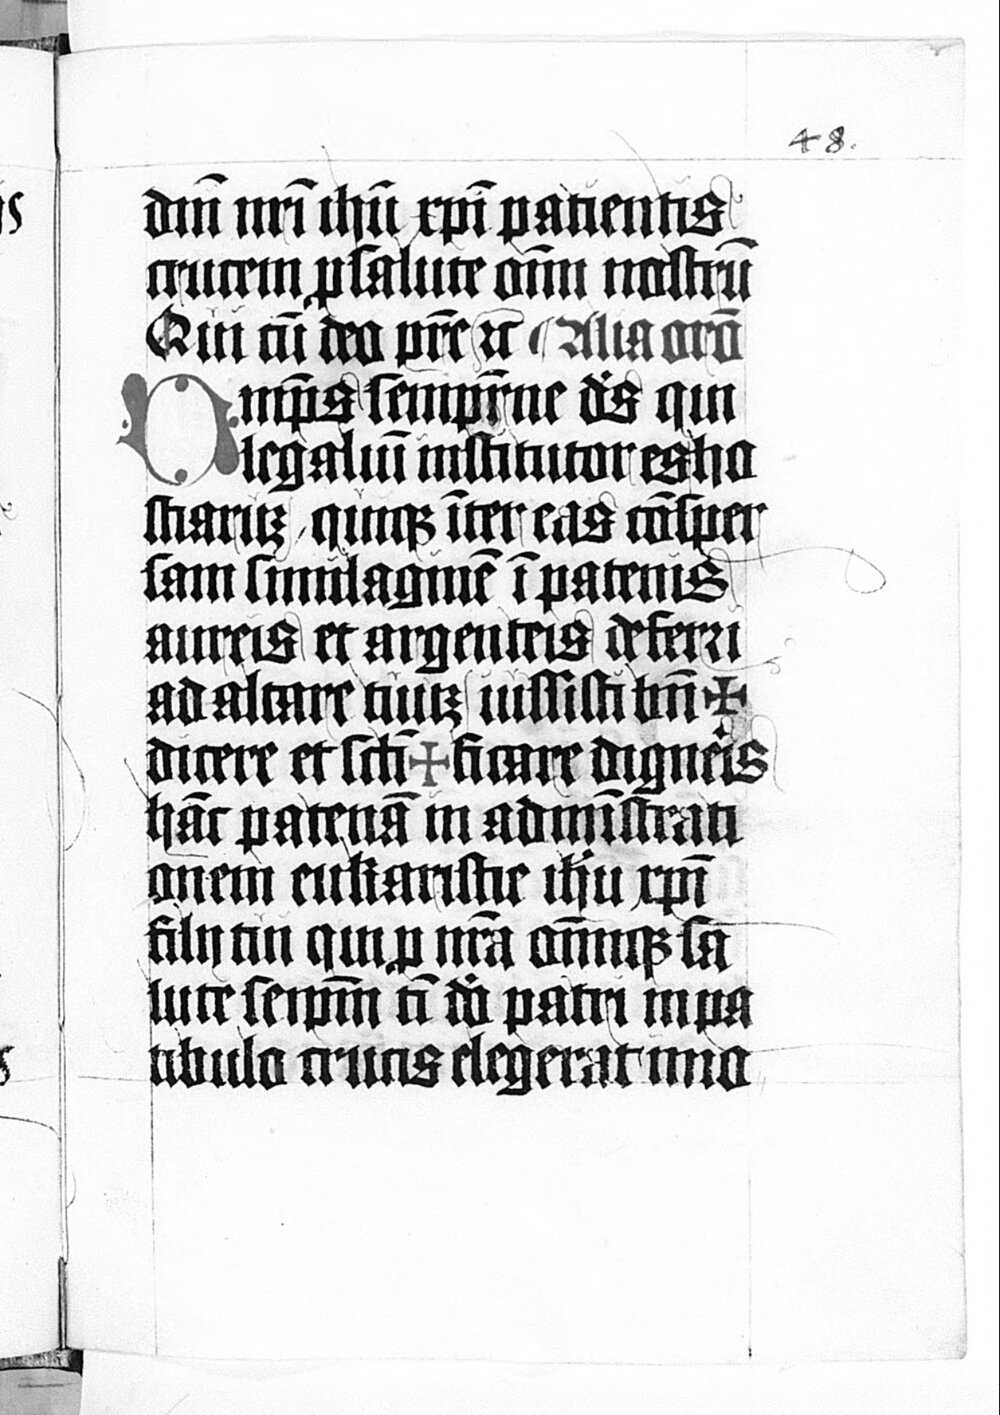 48.
dn̄i nr̄i ih̄u xp̄i patientis
crucem ꝑ salute om̄i nostrū
Qui cū deo pr̄e ꝛc̄ ¶ Alia oro᷑
Omp̄s semp̄rne ds̄ qui
legaliū institutor es ho
stiaruꝫ, quiqꝫ īter eas cōsper
sam similaginē ī patenis
aureis et argenteis deferri
ad altare tuuꝫ iussisti bn̄✠
dicere et sctī✠ficare digneris
hāc patenā in administrati
onem eukaristie ih̄u xp̄i
filij tui qui ꝓ nr̄a om̄iuqꝫ sa
lute seipm̄ ti do patri in pa
tibulo crucis elegerat īmo